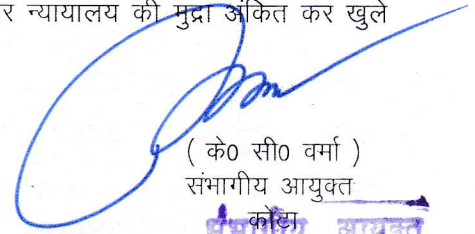 र न्यायालय की मुद्रा अंकित कर खुले
( के० सी० वर्मा )
संभागीय आयुक्त
कोटा
संभागीय आयुक्त